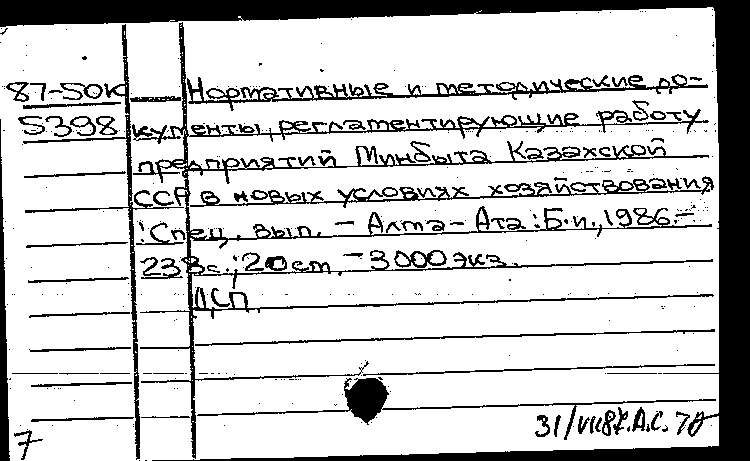 87-50к Нормативные и методические до-
5398 кументы, регламентирующие работу
предприятий Минбыта Казахской
ССР в новых условиях хозяйствования
: Спец. вып. - Алма-Ата : Б.и., 1986.-
238с.; 20 ст. - 3000 экз.
ДСП.
31/VII87. А.С. 70
7